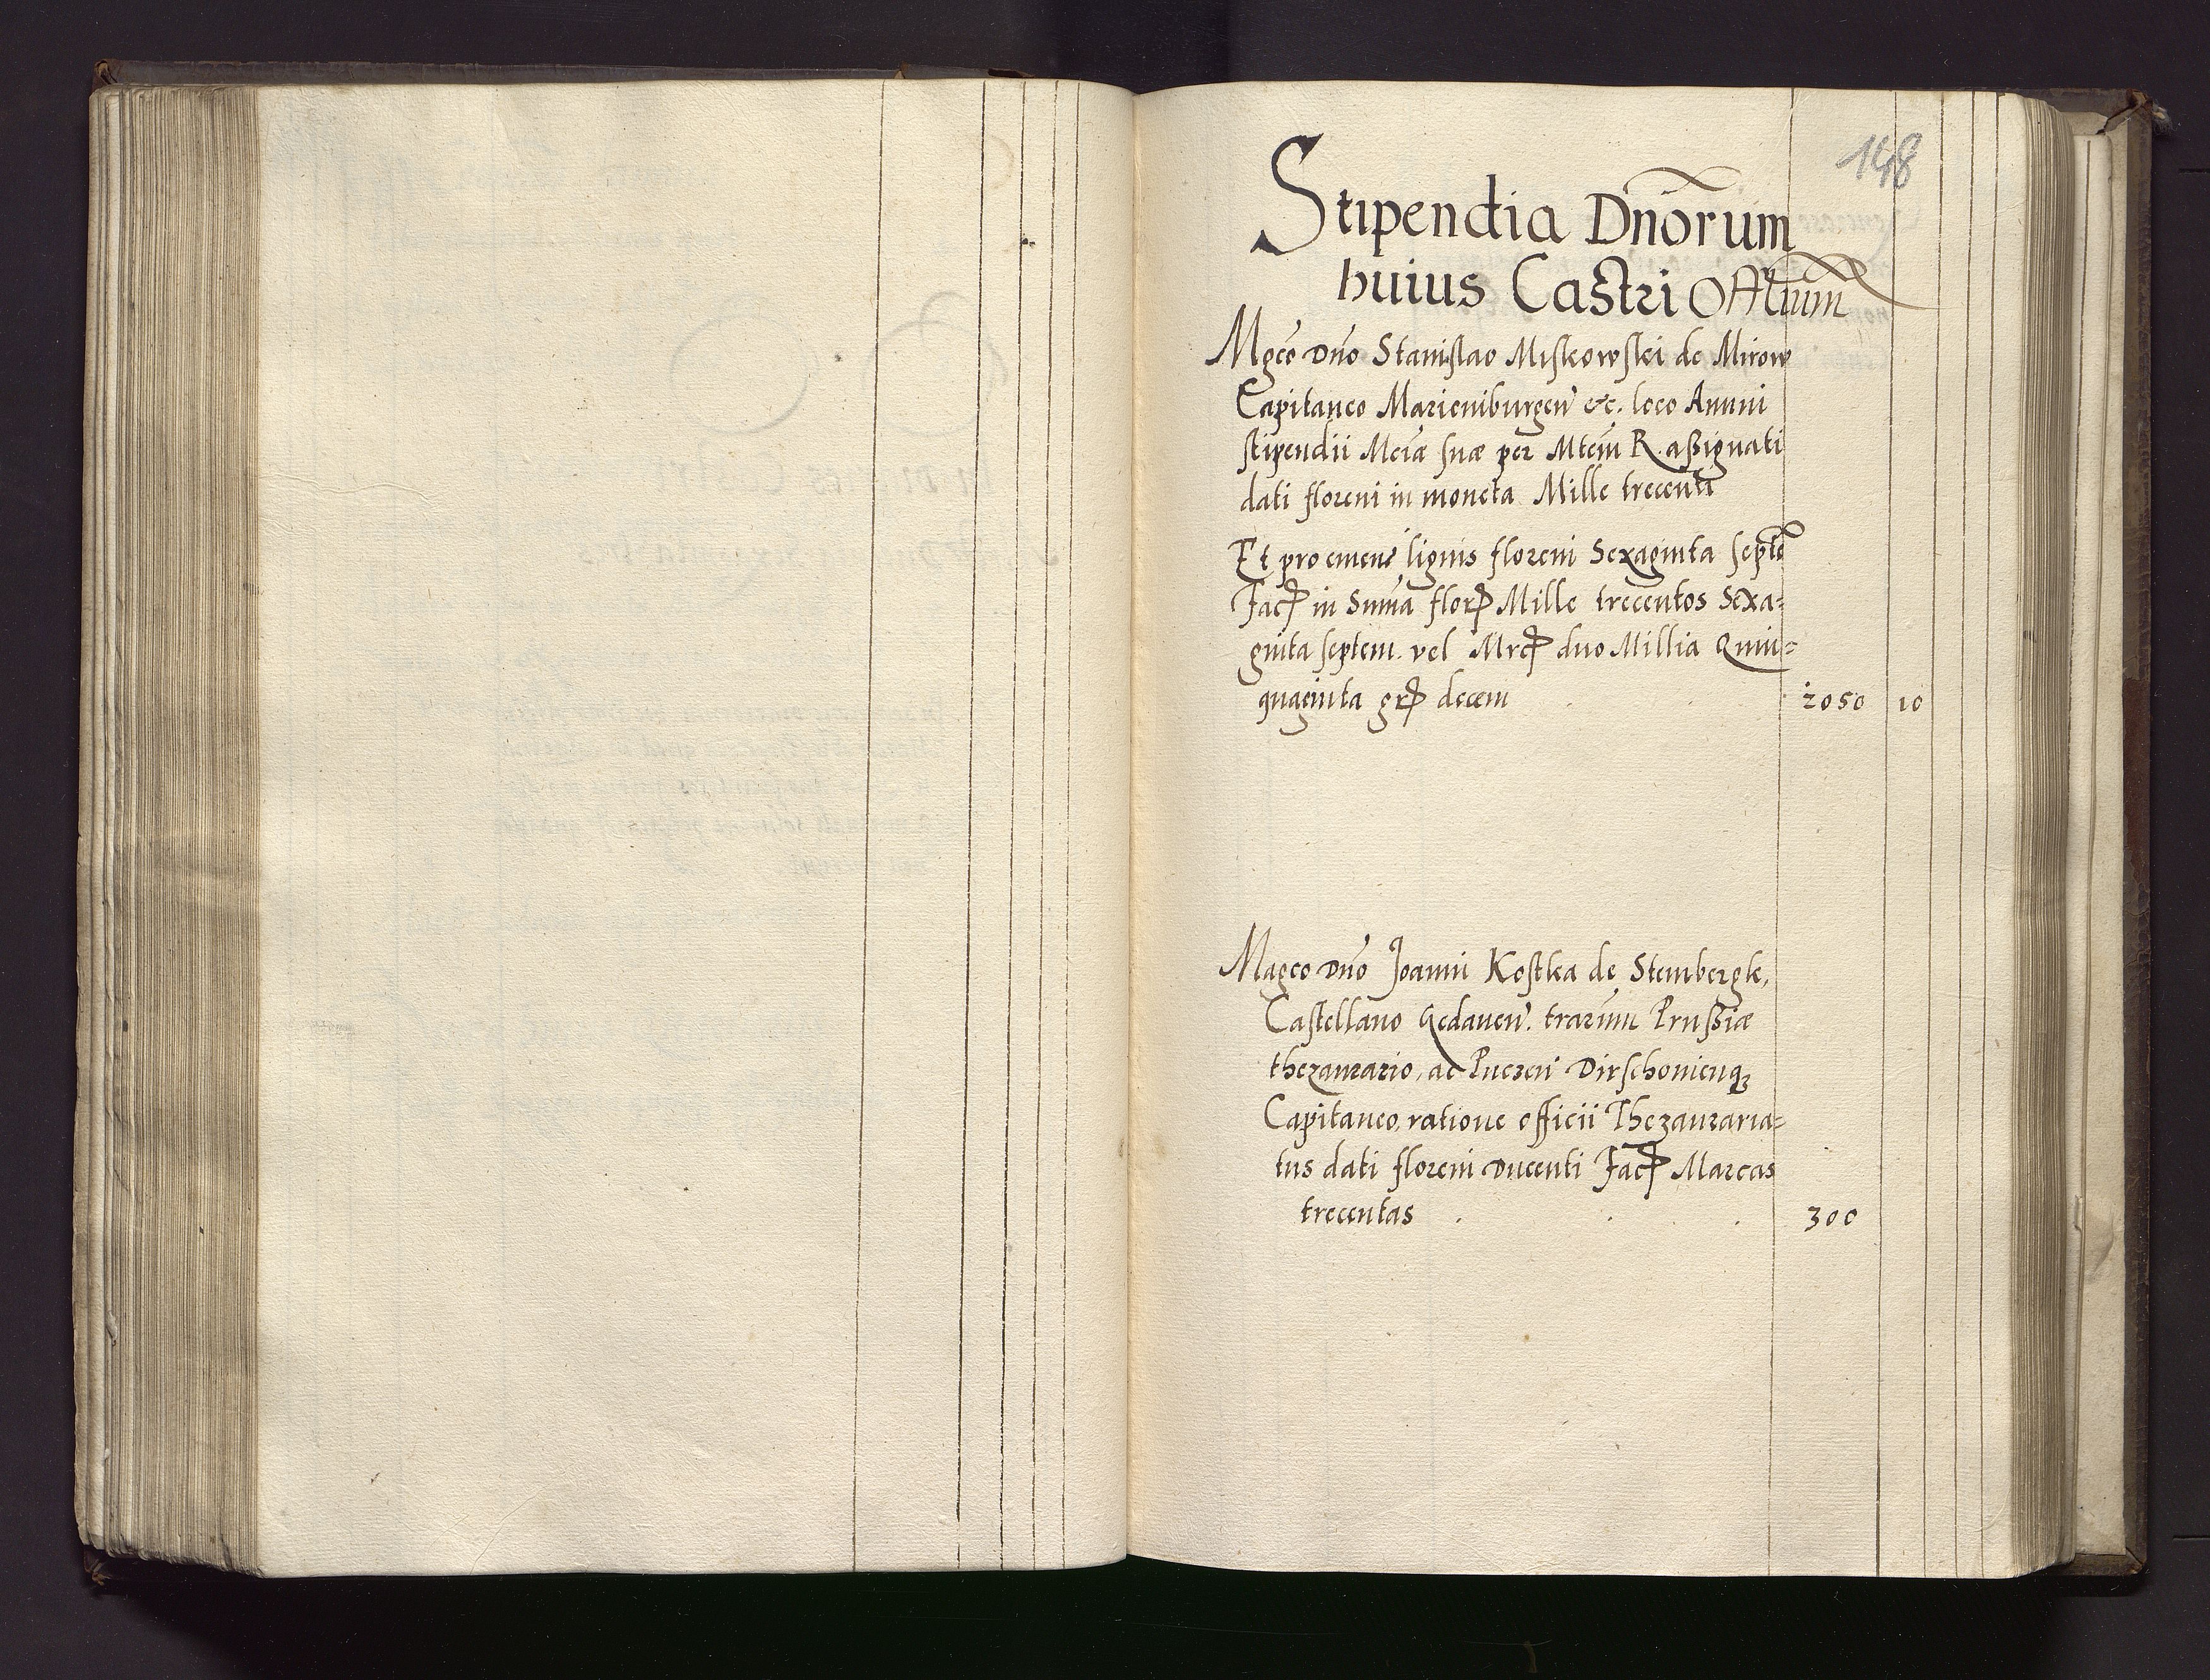 148
Stipendia Dnorum
huius Castri Offlium
Mgco Dno Stanislao Miskowski de Mirow
Capitaneo Marieniburgen etc. loco Annui
stipendii Mciæ suæ per Mtem R. assignati
dati floreni in moneta Mille trecenti
Et pro emen lignis floreni Sexaginta septe
Fac in Suma flor Mille trecentos Sexa=
ginta septem. vel Mrc duo Millia Quin=
quaginta gr decem 2050 10
Magco Dno Joanni Kostka de Stembergk,
Castellano Gedanen. trarum Prussiæ
thezaurario, ac Puczen Dirschonienq3
Capitaneo, ratione officii Thezauraria=
tus dati floreni Ducenti Fac Marcas
trecentas . . . 300